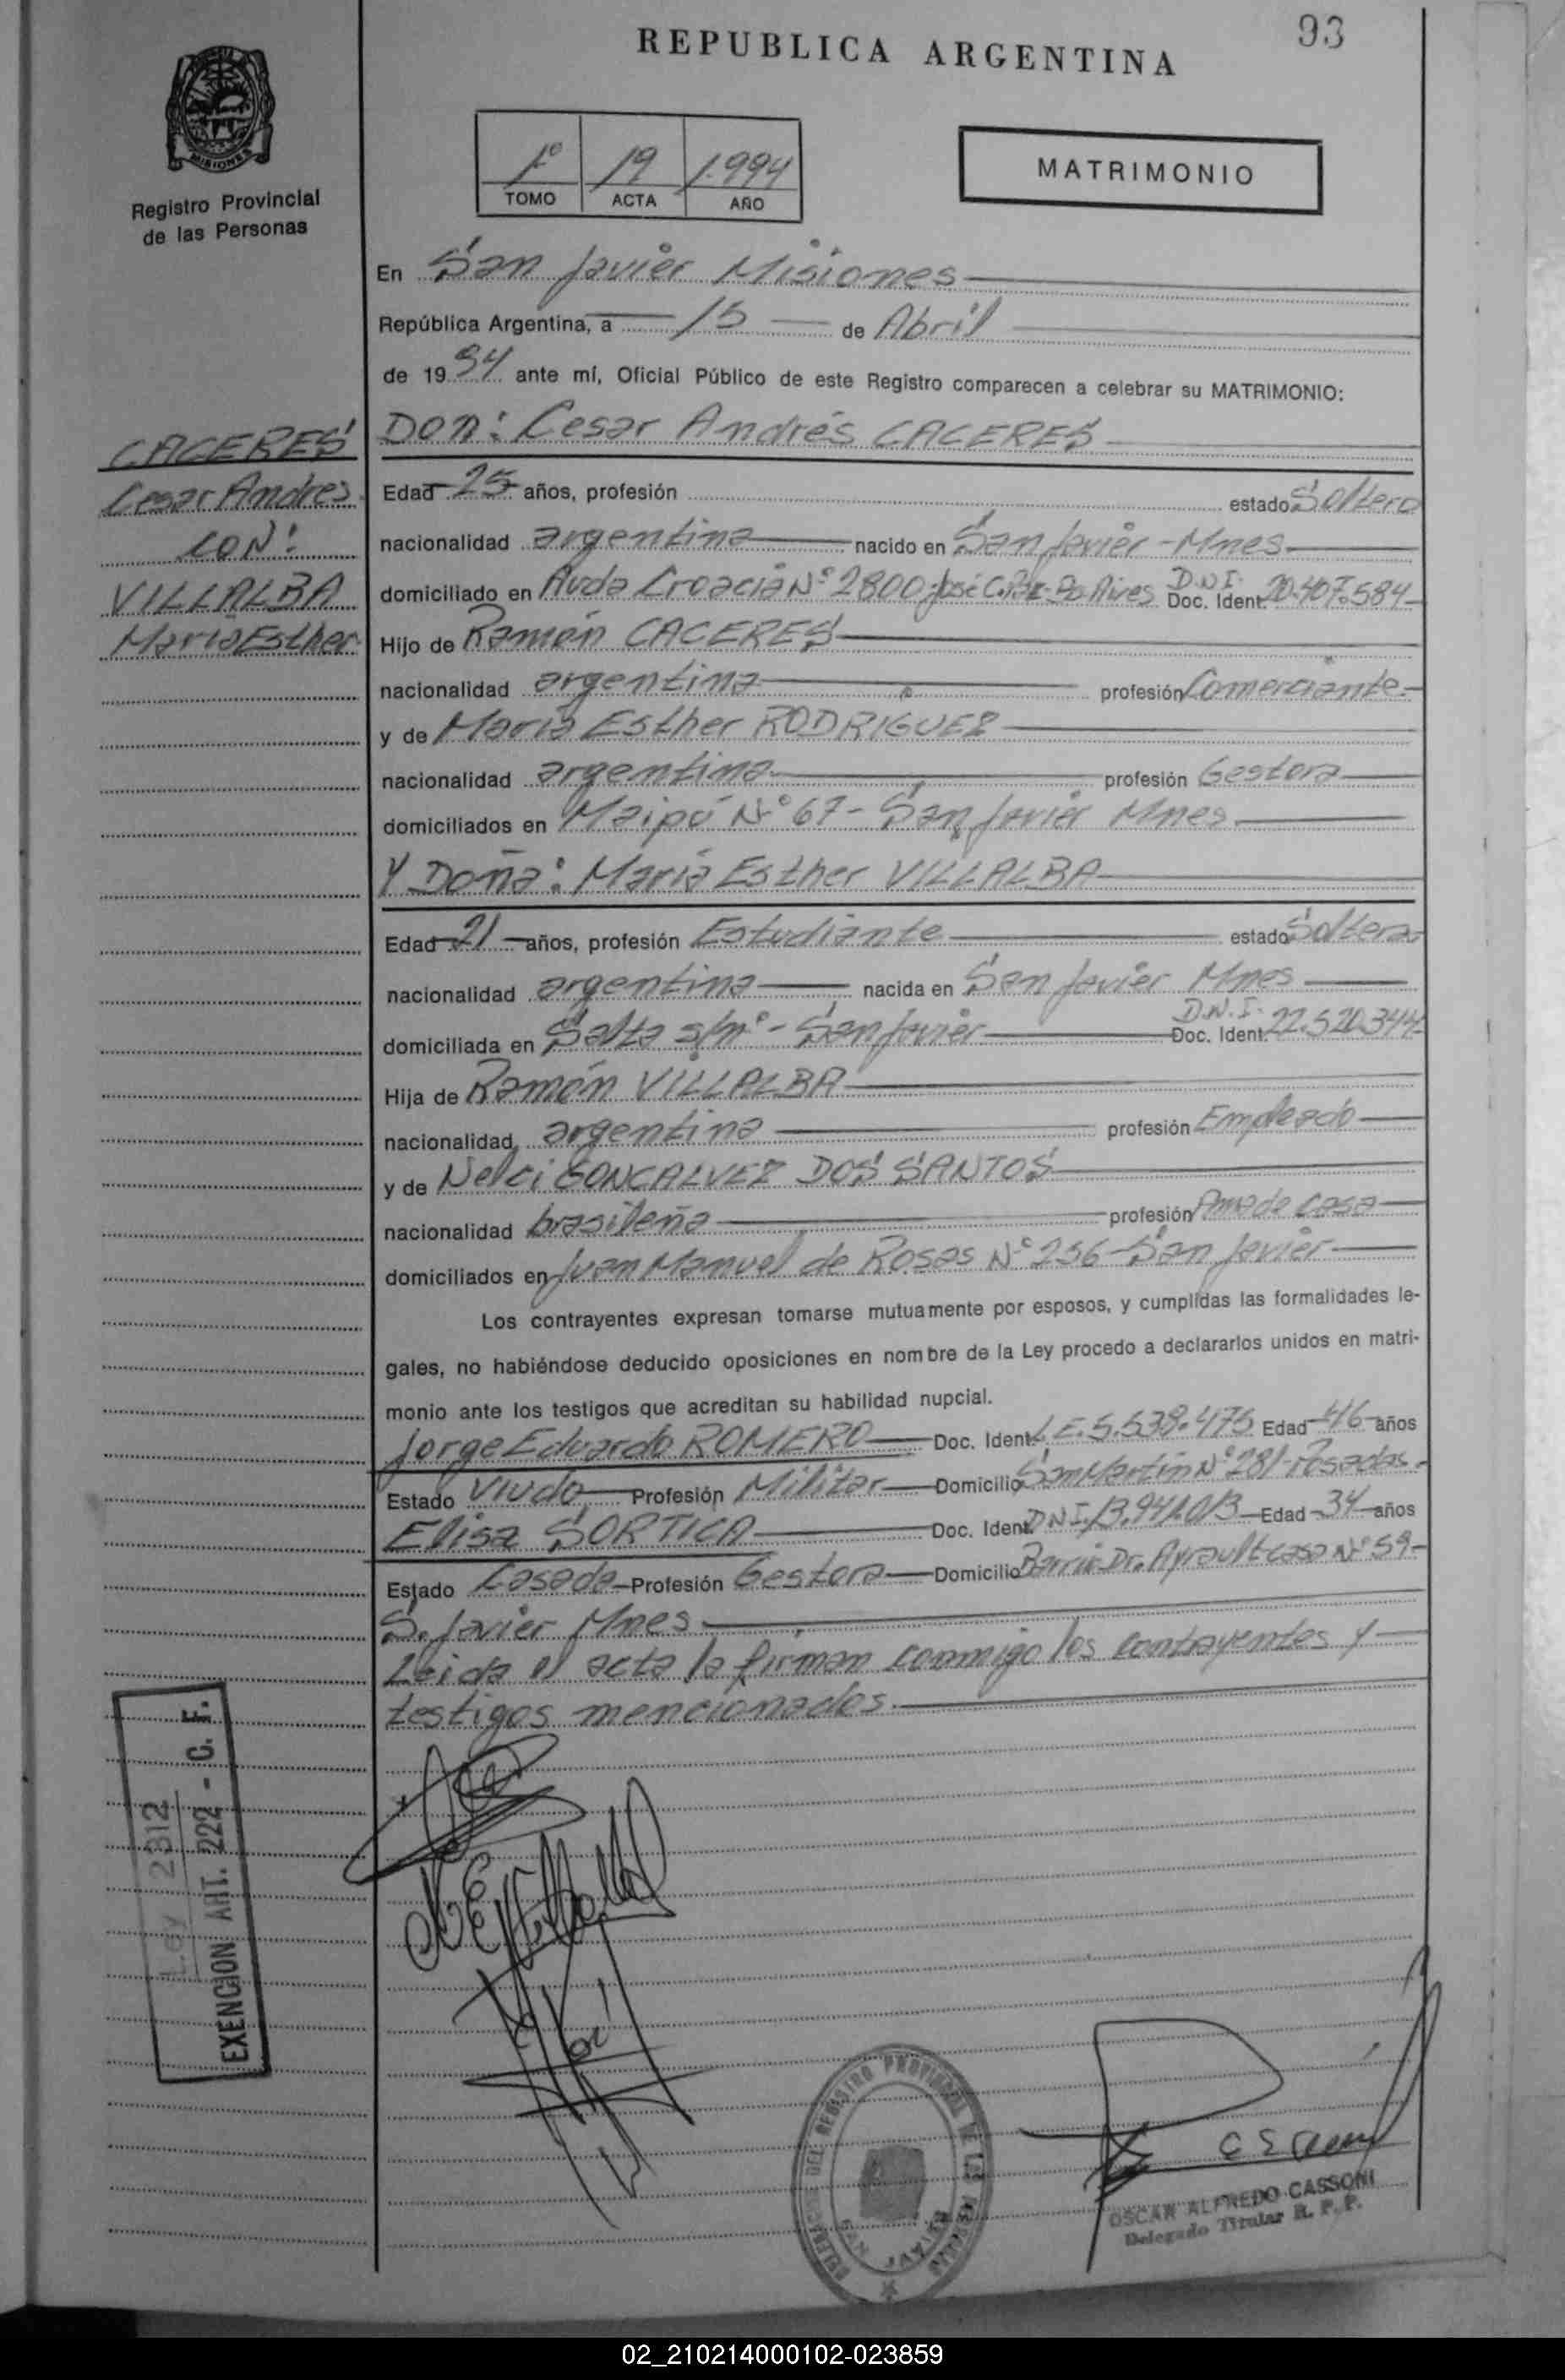 REPUBLICA ARGENTINA
93
MISIONES
Registro Provincial
de las Personas
1º 19 1.994
TOMO ACTA AÑO
MATRIMONIO
En San Javier Misiones
República Argentina, a 15 de Abril
de 1994 ante mí, Oficial Público de este Registro comparecen a celebrar su MATRIMONIO:
CACERES
Cesar Andres
CON:
VILLALBA
Maria Esther
Don: Cesar Andrés CACERES
Edad 25 años, profesión estado Soltero
nacionalidad argentina nacido en San Javier - Mnes
domiciliado en Avda Croacia Nº 2800 José C. Paz - Bs Aires D.N.I. Doc. Ident. 20.407.584
Hijo de Ramón CACERES
nacionalidad argentina profesión Comerciante
y de María Esther RODRIGUEZ
nacionalidad argentina profesión Gestora
domiciliados en Maipú Nº 67 - San Javier Mnes
Y Doña: María Esther VILLALBA
Edad 21 años, profesión Estudiante estado Soltera
nacionalidad argentina nacida en San Javier Mnes
domiciliada en Salta s/nº - San Javier D.N.I. Doc. Ident. 22.520.344
Hija de Ramón VILLALBA
nacionalidad argentina profesión Empleado
y de Nelci GONCALVEZ DOS SANTOS
nacionalidad brasileña profesión Ama de casa
domiciliados en Juan Manuel de Rosas Nº 256 - San Javier
Los contrayentes expresan tomarse mutuamente por esposos, y cumplidas las formalidades le-
gales, no habiéndose deducido oposiciones en nombre de la Ley procedo a declararlos unidos en matri-
monio ante los testigos que acreditan su habilidad nupcial.
Jorge Eduardo ROMERO Doc. Ident. L.E. 5.538.475 Edad 46 años
Estado Viudo Profesión Militar Domicilio San Martín Nº 281 - Posadas
Elisa SORTICA Doc. Ident. DNI. 13.941.013 Edad 34 años
Estado Casada Profesión Gestora Domicilio Barrio Dr. Ayrault casa Nº 59
S. Javier Mnes
Leida el acta la firman conmigo los contrayentes y
testigos mencionados
Ley 2312
EXENCION ART. 222 - C. F.
DEL REGISTRO PROVINCIAL DE LAS PERSONAS
OSCAR ALFREDO CASSONI
Delegado Titular R. P. P.
02_210214000102-023859